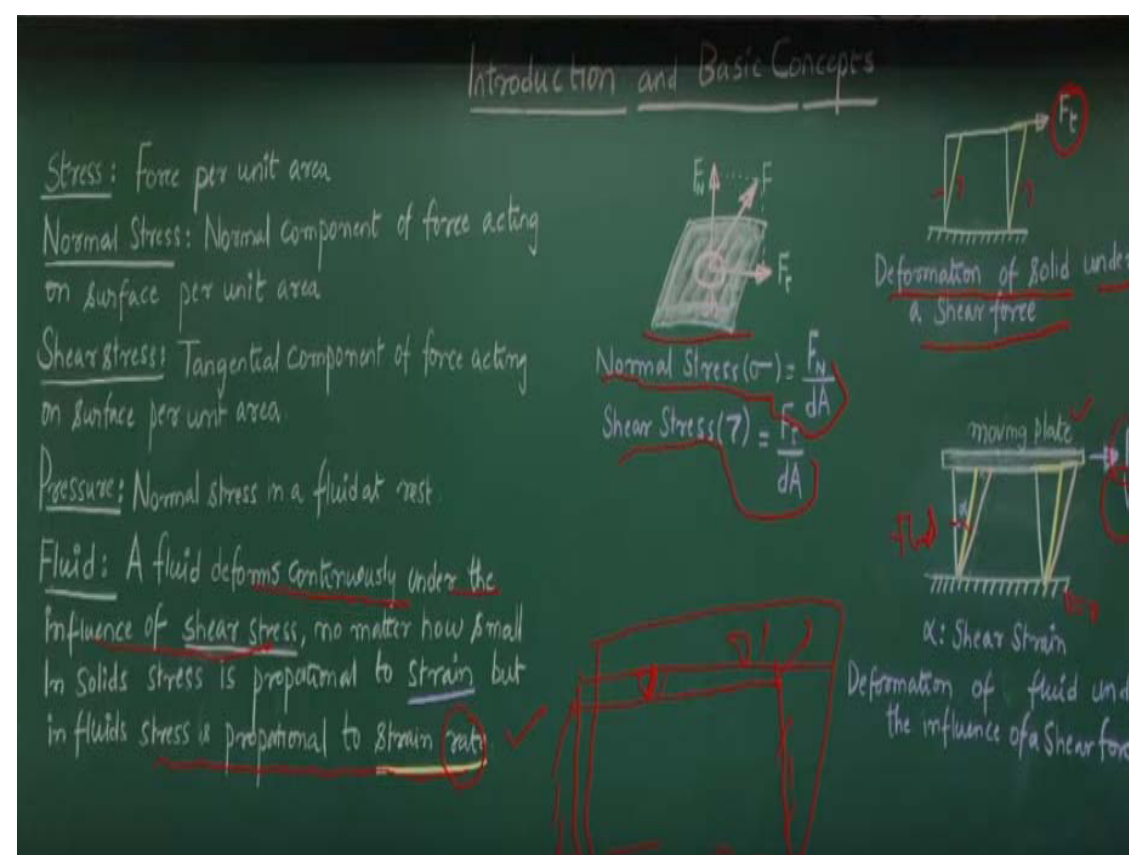 Introduction and Basic Concepts
Stress: Force per unit area
Normal Stress: Normal component of force acting
on surface per unit area
Shear stress: Tangential component of force acting
on surface per unit area.
Pressure: Normal stress in a fluid at rest.
Fluid: A fluid deforms continuously under the
influence of shear stress, no matter how small
In solids stress is propotional to strain but
in fluids stress is propotional to strain rate
F_N F
F_t
Normal Stress (σ) = F_N/dA
Shear Stress (τ) = F_t/dA
F_t
Deformation of solid under
a shear force
moving plate
α
fluid
α: Shear Strain
Deformation of fluid und
the influence of a Shear for